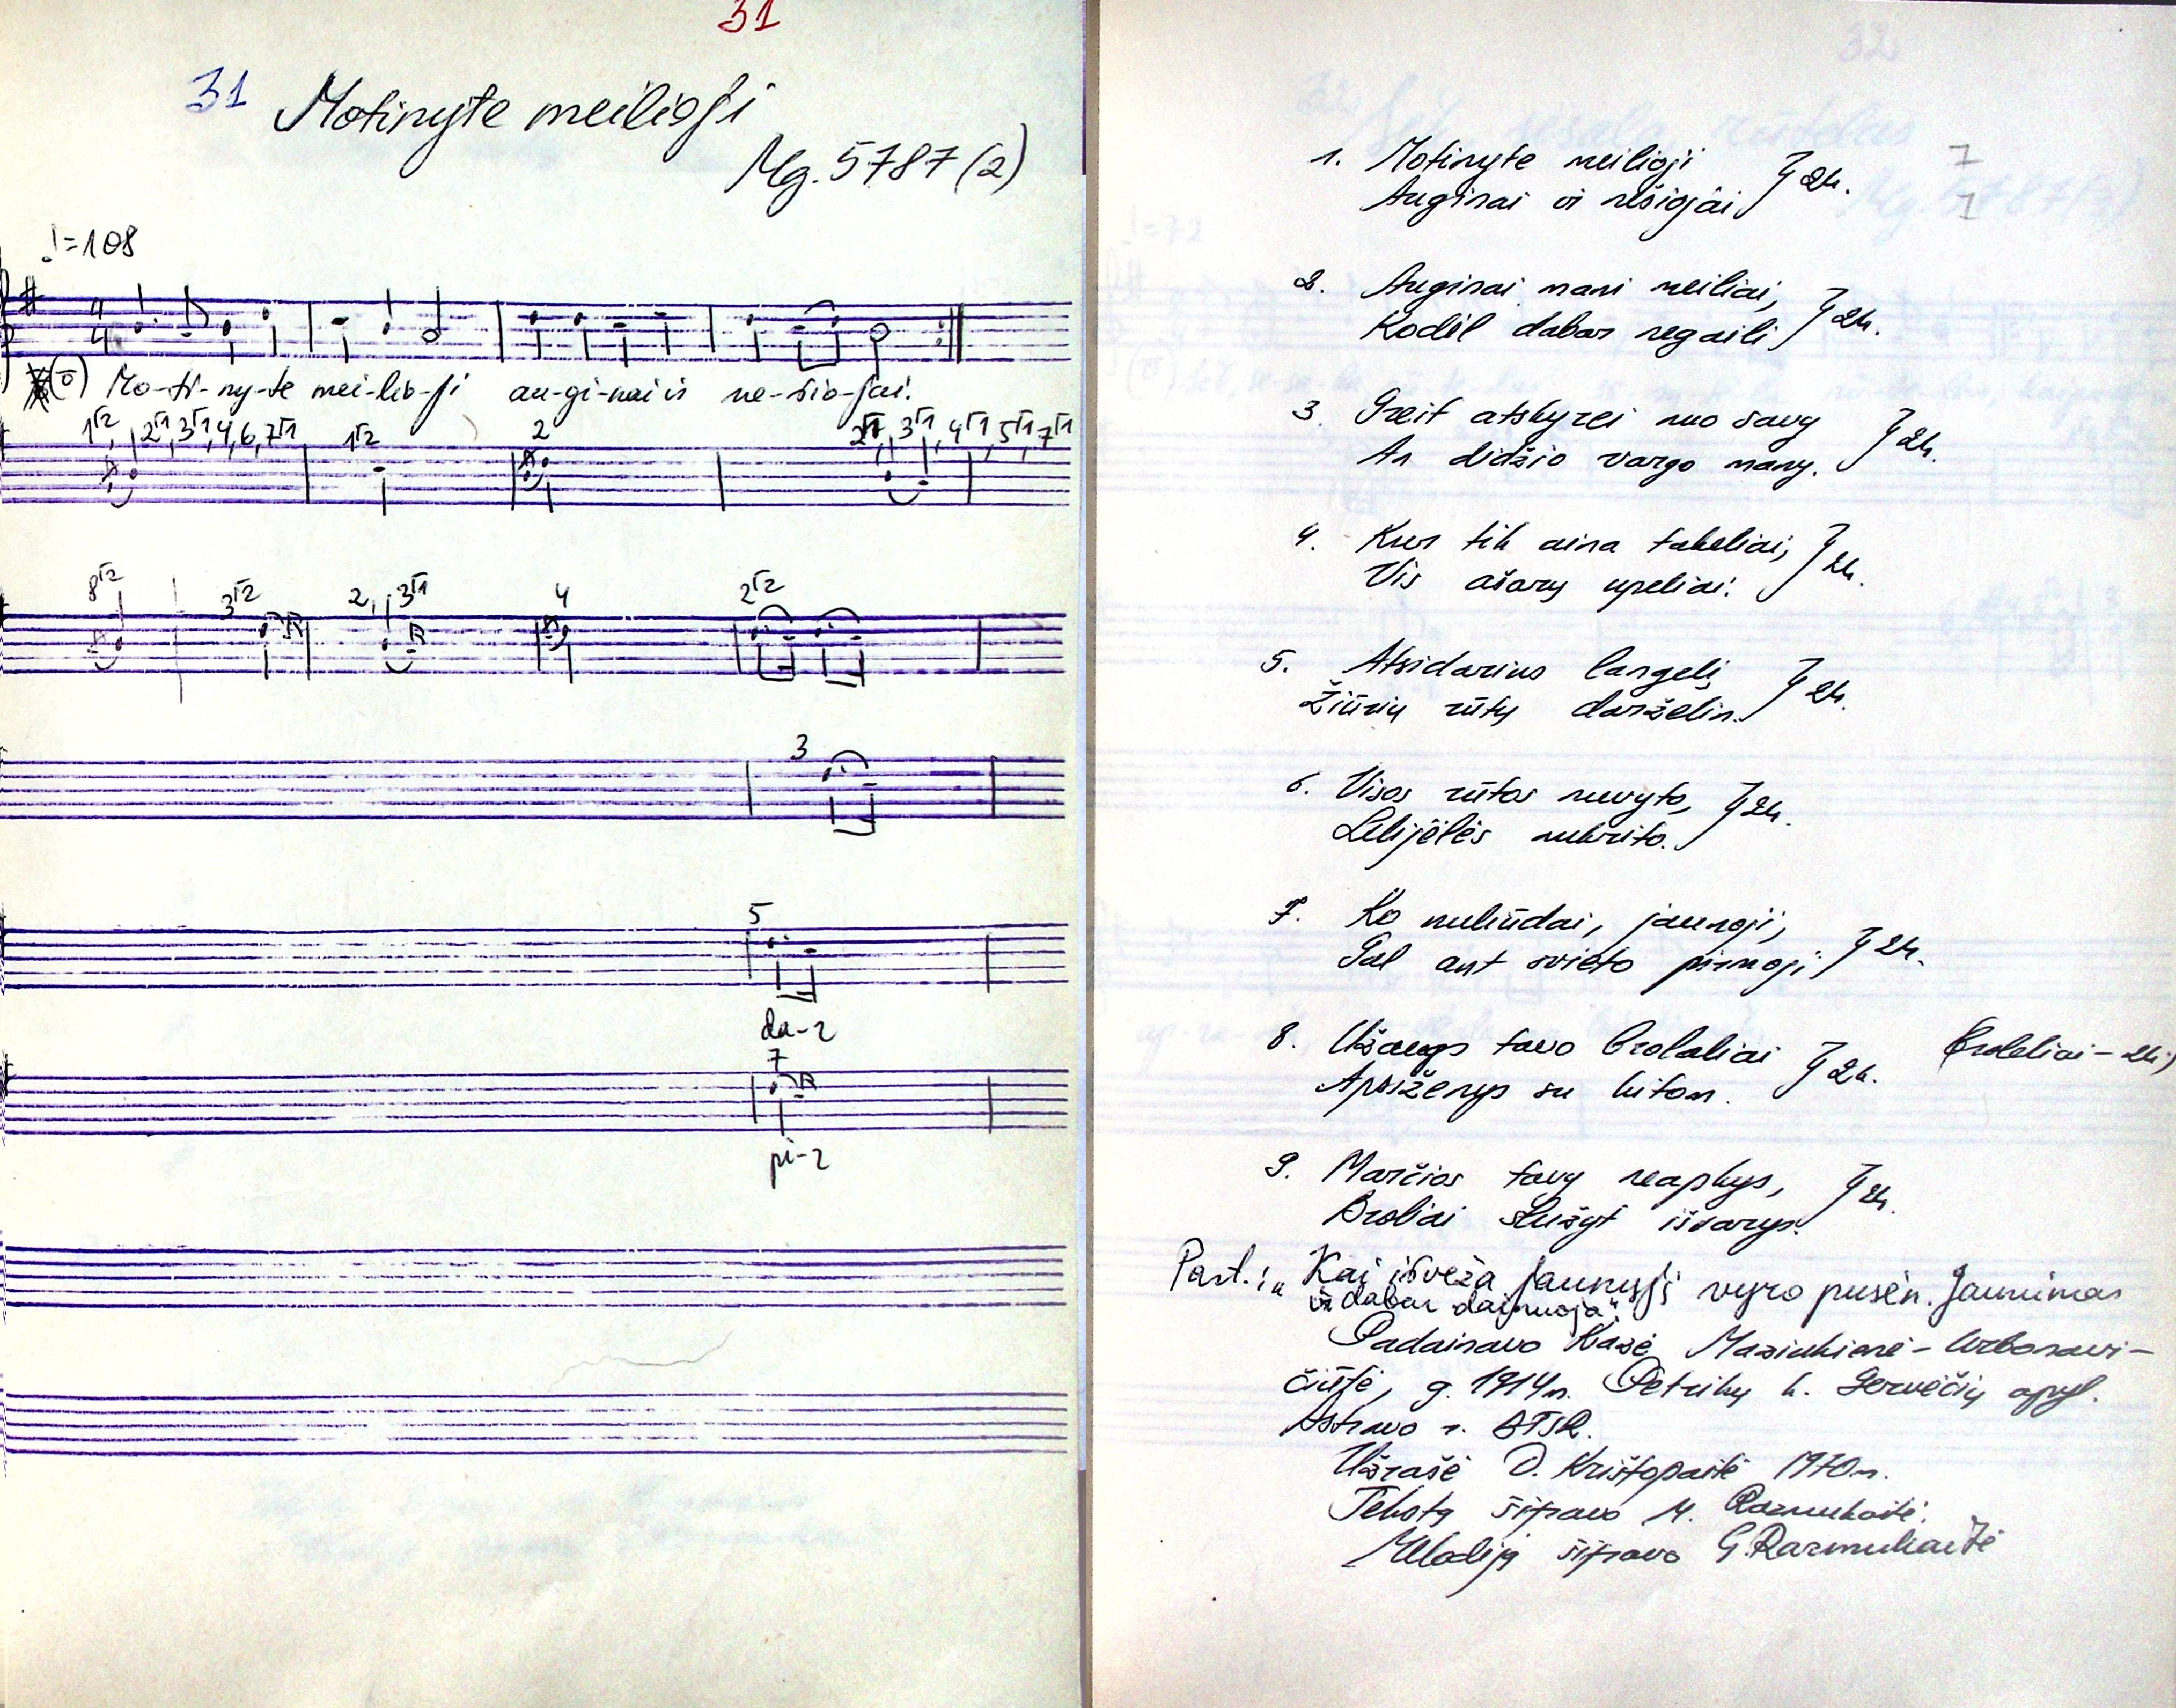 31
31 Motinyte meilioji
Mg. 5787 (2)
♩=108
4
4
(ō) Mo-ti-ny-te mei-lio-ji au-gi-nai ir ne-šio-jai.
2
4
3
5
da-r
7
pi-r
1. Motinyte meilioji } 2k.
Auginai ir nešiojai
2. Auginai mani meiliai, } 2k.
Kodėl dabar negaili
3. Greit atskyrei nuo savų } 2k.
An didžio vargo many.
4. Kur tik aina takeliai, } 2k.
Vis ašarų upeliai.
5. Atsidarius langelį } 2k.
Žiūriu rūtų darželin.
6. Visos rūtos nuvyto, } 2k.
Lelijėlės nukrito.
7. Ko nuliūdai, jaunoji, } 2k.
Gal ant svieto pirmoji
8. Užaugs tavo brolaliai } 2k. (broleliai - 2k.)
Apsiženys su kitom.
9. Marčios tavų neapkęs, } 2k.
Broliai služyt išvarys.
Past.: „Kai išveža jaunąją vyro pusėn. Jaunimas
ir dabar dainuoja“.
Padainavo Kazė Maziukienė - Urbonavi-
čiūtė, g. 1914 m. Petrikų k. Gervėčių apyl.
Astravo r. BTSR.
Užrašė D. Krištopaitė 1970 m.
Tekstą šifravo M. Razmukaitė.
Melodiją šifravo G. Razmukaitė